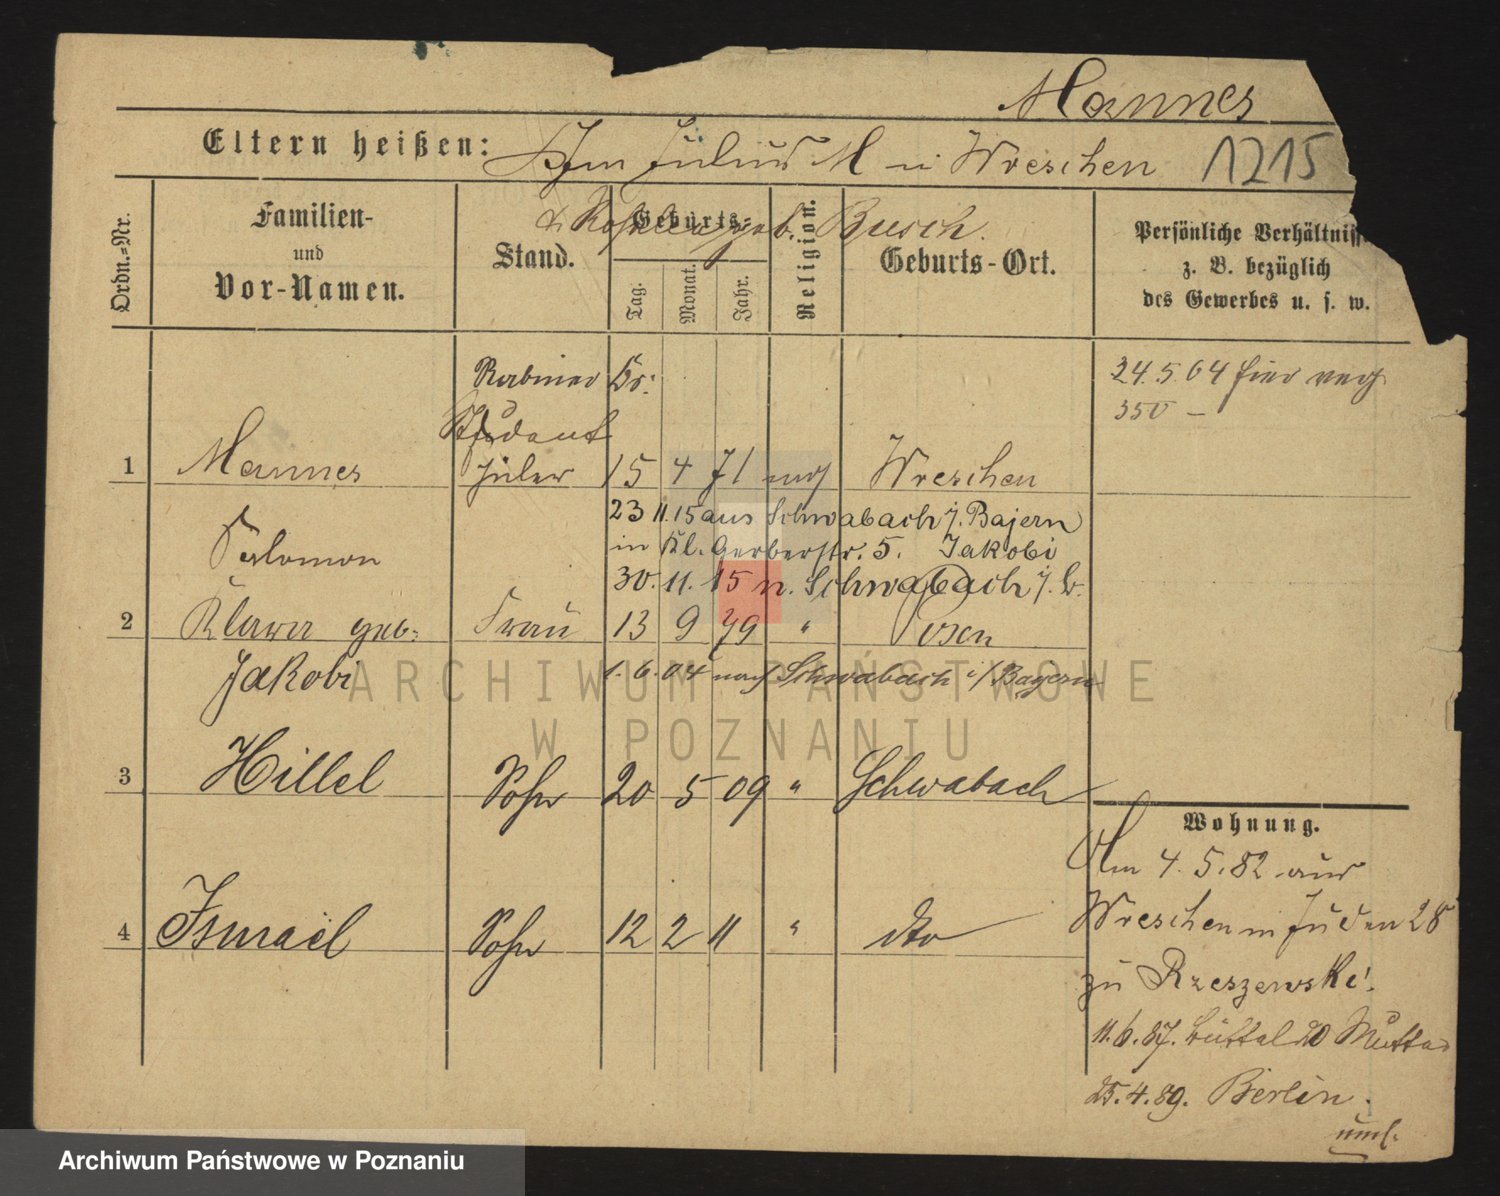 Mannes
Eltern heißen: Kfm Julius M in Wreschen 1215
Geburts-
geb. Busch.
Ordn.-Nr.
Familien-
und
Vor-Namen.
Stand.
Tag.
Monat.
Jahr.
Religion.
Geburts-Ort.
Persönliche Verhältniss
z. B. bezüglich
des Gewerbes u. s. w.
Rabiner Dr.
24.5.04
350 –
1 Mannes 15 4 71 mos Wreschen
Salomon
23 11.15 aus Schwabach /. Bajern
in Kl. Gerberstr. 5. Jakobi
30. 11. 15 n. Schwabach /. B.
2 Klara geb: Frau 13 9 79 " Posen
Jakobi
1. 6. 04 nach Schwabach i/Bayern
3 Hillel Sohn 20 5 09 " Schwabach
4 Ismaël Sohn 12 2 11 " dto
Wohnung.
Am 4. 5. 82 aus
Wreschen in Juden 28
zu Rzeszewski.
11. 6. 87. Büttel 20 Mutter
25. 4. 89. Berlin.
ARCHIWUM PAŃSTWOWE
W POZNANIU
Archiwum Państwowe w Poznaniu